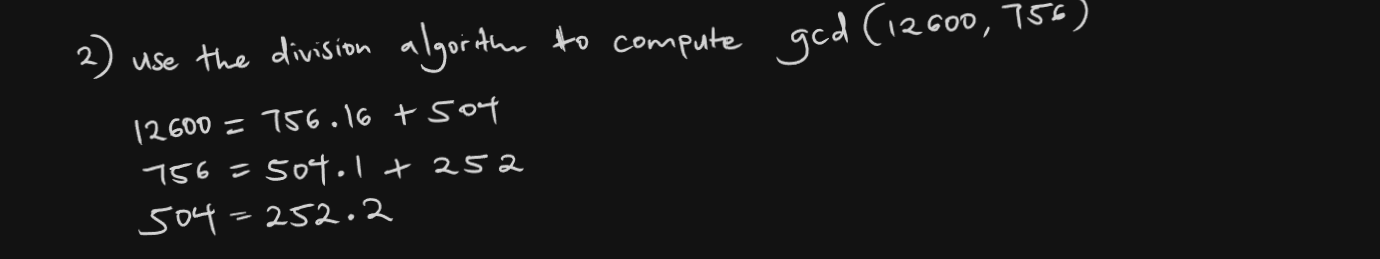 2) use the division algorithm to compute gcd (12600, 756)
12600 = 756.16 + 504
756 = 504.1 + 252
504 = 252.2